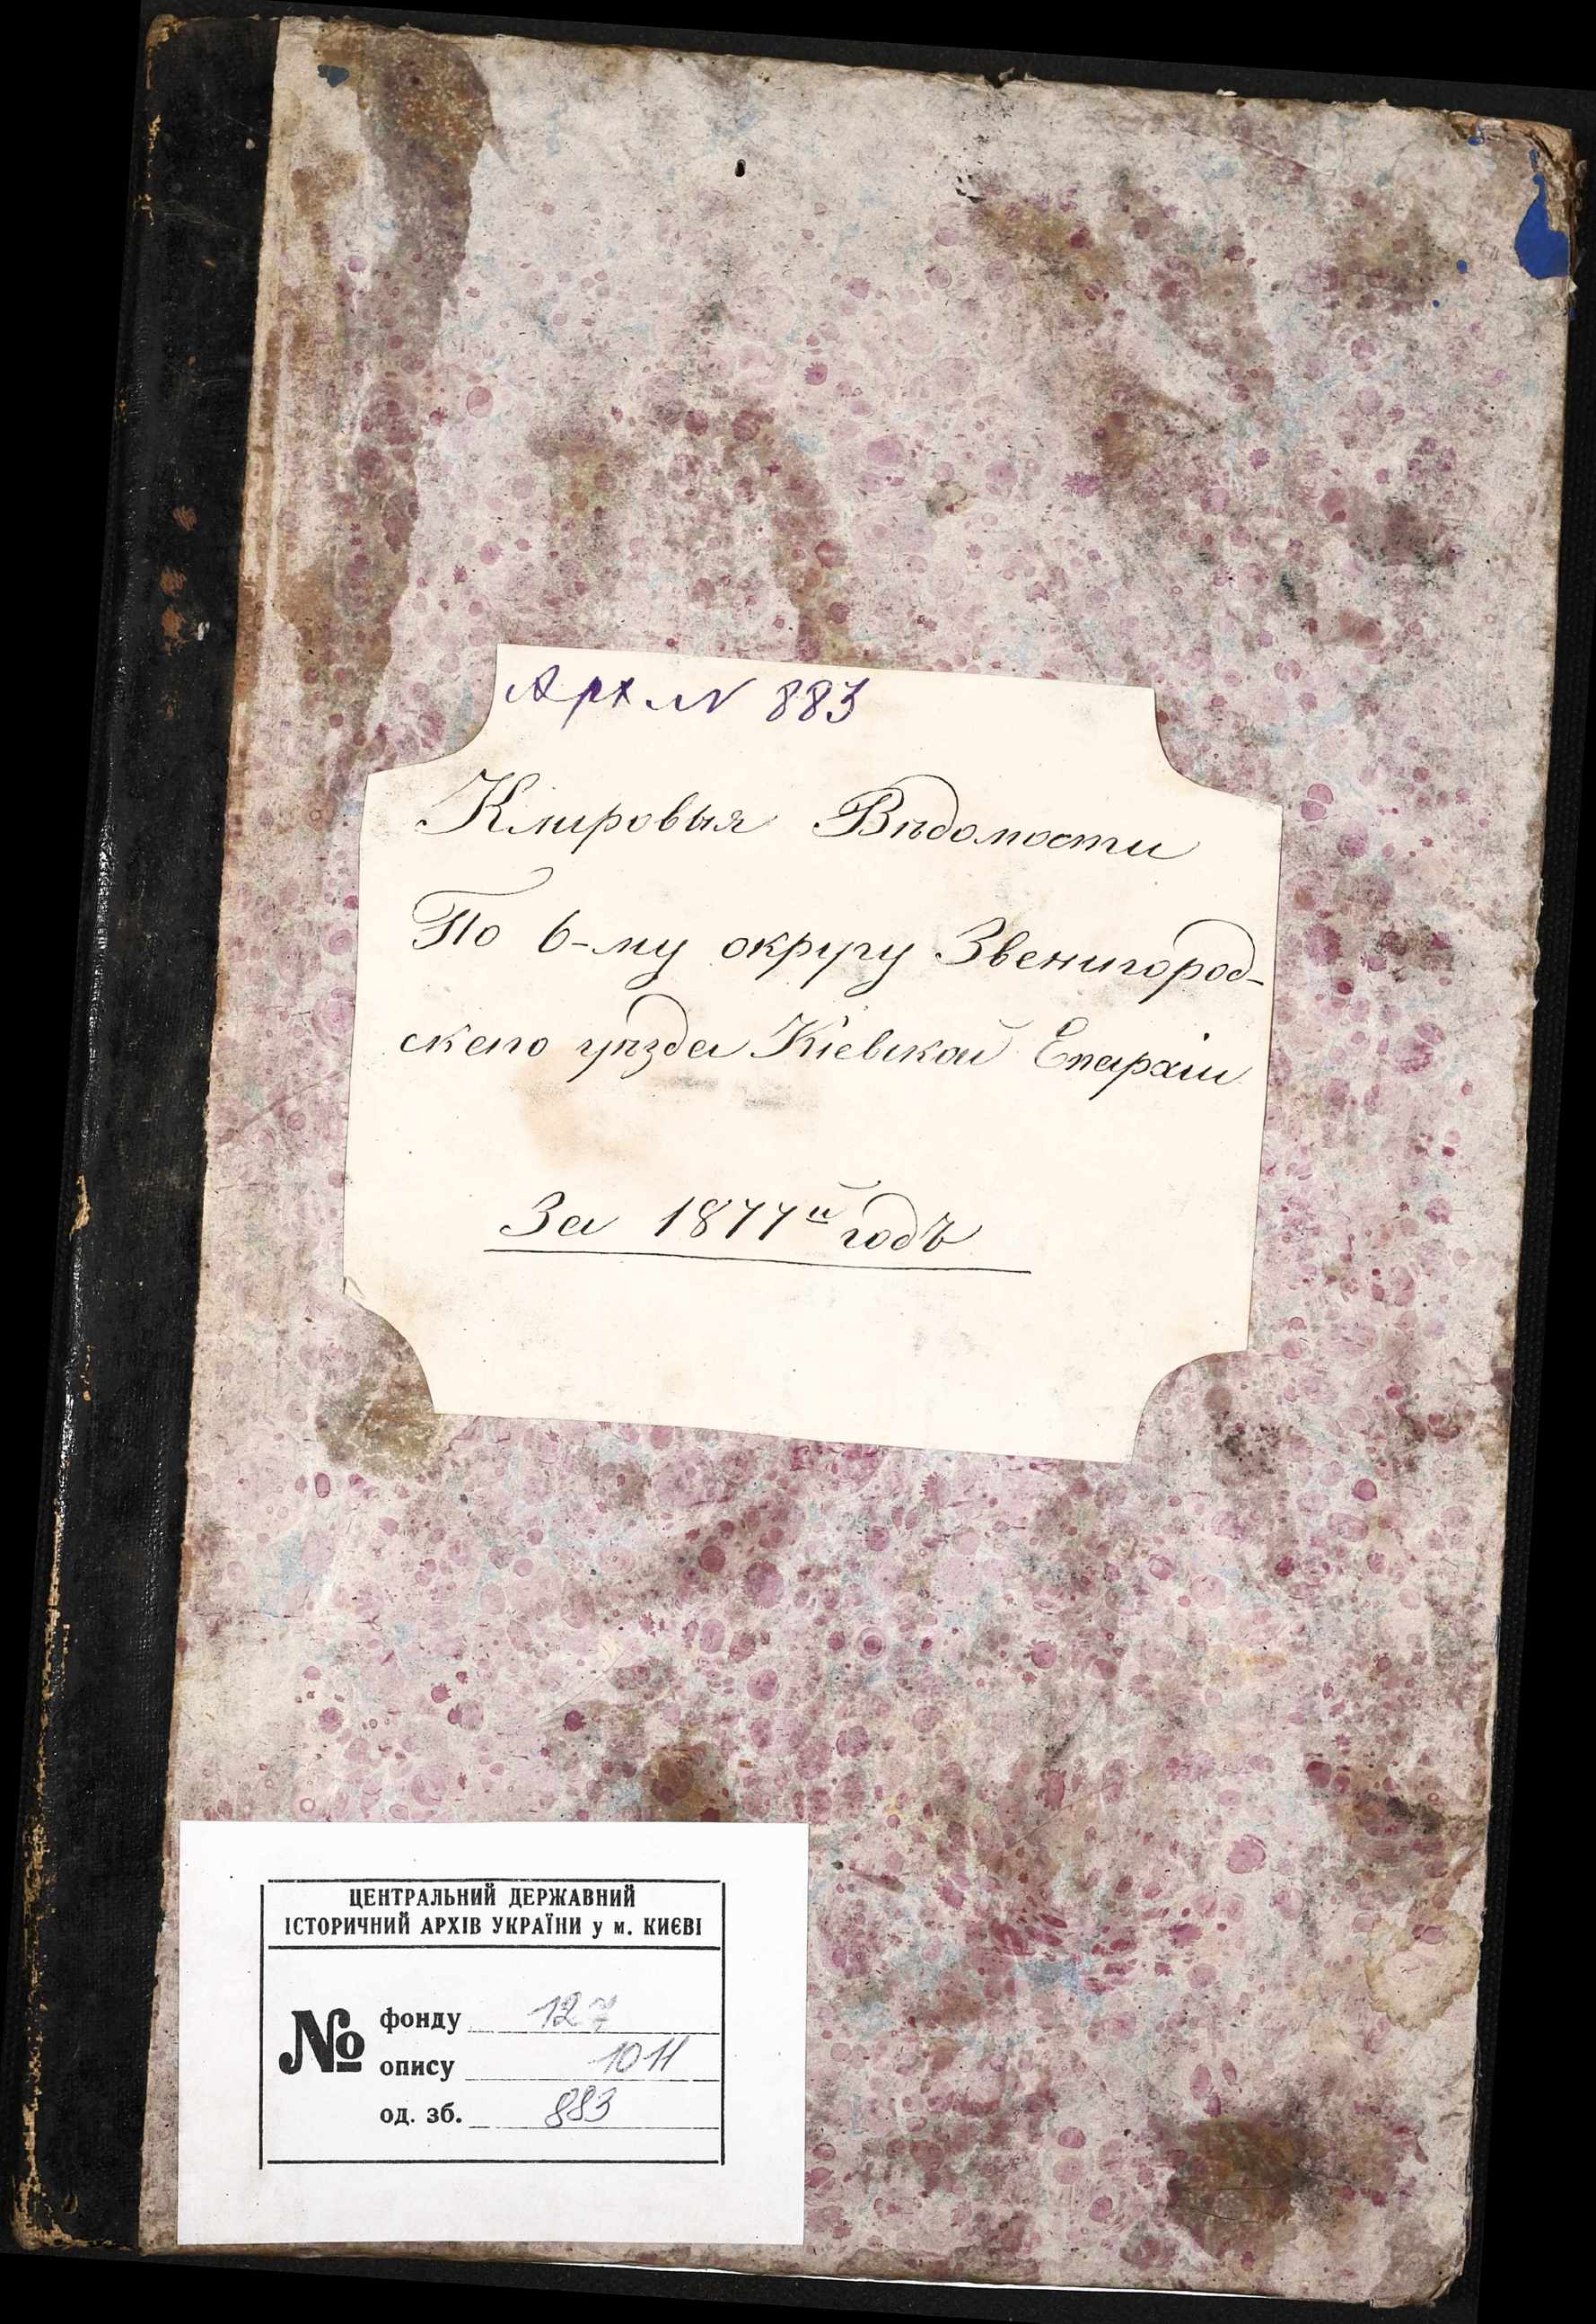 Арх № 883
Клировыя Вѣдомости
По 6-му округу Звенигород-
скаго уѣзда Кіевской Епархіи
За 1877й годъ
ЦЕНТРАЛЬНИЙ ДЕРЖАВНИЙ
ІСТОРИЧНИЙ АРХІВ УКРАЇНИ у м. КИЄВІ
№
фонду 127
опису 1011
од. зб. 883